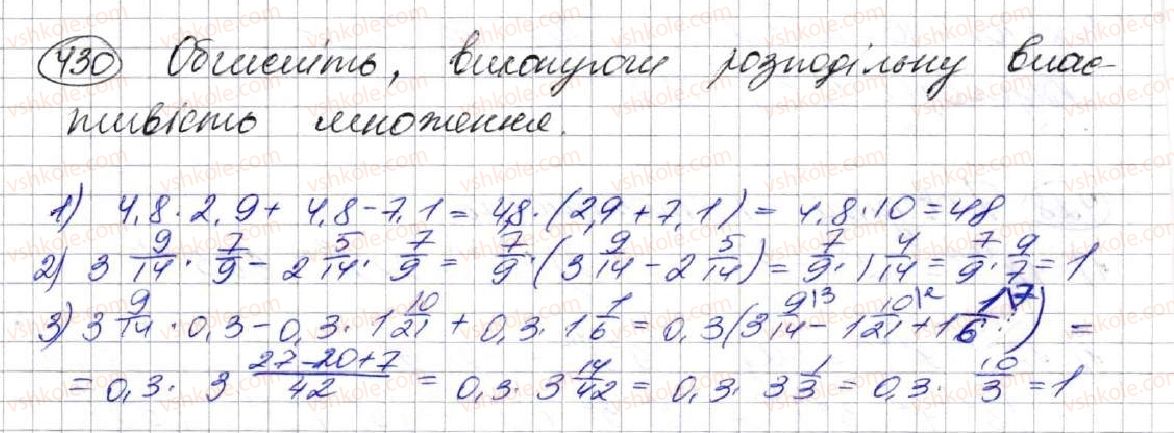 430 Обчисліть, виконуючи розподільну влас-
тивість множення.
1) 4,8 · 2,9 + 4,8 - 7,1 = 4,8 · (2,9 + 7,1) = 4,8 · 10 = 48
2) 3 9/14 · 7/9 - 2 5/14 · 7/9 = 7/9 · (3 9/14 - 2 5/14) = 7/9 · 1 4/14 = 7/9 · 9/7 = 1
3) 3 9/14 · 0,3 - 0,3 · 1 10/21 + 0,3 · 1 1/6 = 0,3 (3 9/14 |3 - 1 10/21 |2 + 1 1/6 |7) =
= 0,3 · 3 27-20+7/42 = 0,3 · 3 14/42 = 0,3 · 3 1/3 = 0,3 · 10/3 = 1